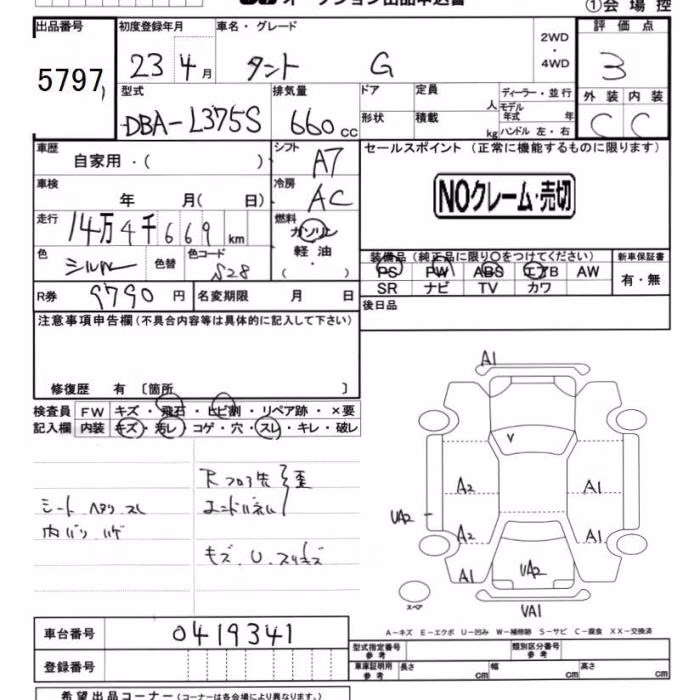 オークション出品申込書
①会場控
出品番号 初度登録年月 車名・グレード 2WD・4WD 評価点
5797 23 4月 タント G 3
型式 排気量 ドア 定員 人 ディーラー・並行 外装 内装
DBA-L375S 660cc 形状 積載 kg モデル年式 年 ハンドル 左・右 C C
車歴 自家用・( ) シフト A7 セールスポイント(正常に機能するものに限ります)
車検 年 月( 日) 冷房 AC NOクレーム・売切
走行 14万4千669km 燃料 ガソリン
色 シルバー 色替 色コード S28 軽油・( )
装備品(純正品に限り○をつけてください) 新車保証書
PS PW ABS エアB AW 有・無
SR ナビ TV カワ
R券 9790円 名変期限 月 日 後日品
注意事項申告欄(不具合内容等は具体的に記入して下さい)
修復歴 有〔箇所 〕
検査員 FW キズ・飛石・ヒビ割・リペア跡・×要
記入欄 内装 キズ・汚レ・コゲ・穴・スレ・キレ・破レ
Rフロア先歪
シート ヘタリ スレ エンドパネル
内バリ ハゲ
キズ、U、スリキズ
A1
V
A2 A1
UA2
A2 A1
A1 UA2 A1
スペア
VA1
A-キズ E-エクボ U-凹み W-補修跡 S-サビ C-腐食 XX-交換済
車台番号 0419341
型式指定番号 参考 類別区分番号 参考
登録番号 車庫証明用 参考 長さ cm 幅 cm 高さ cm
希望出品コーナー(コーナーは各会場により異なります。)